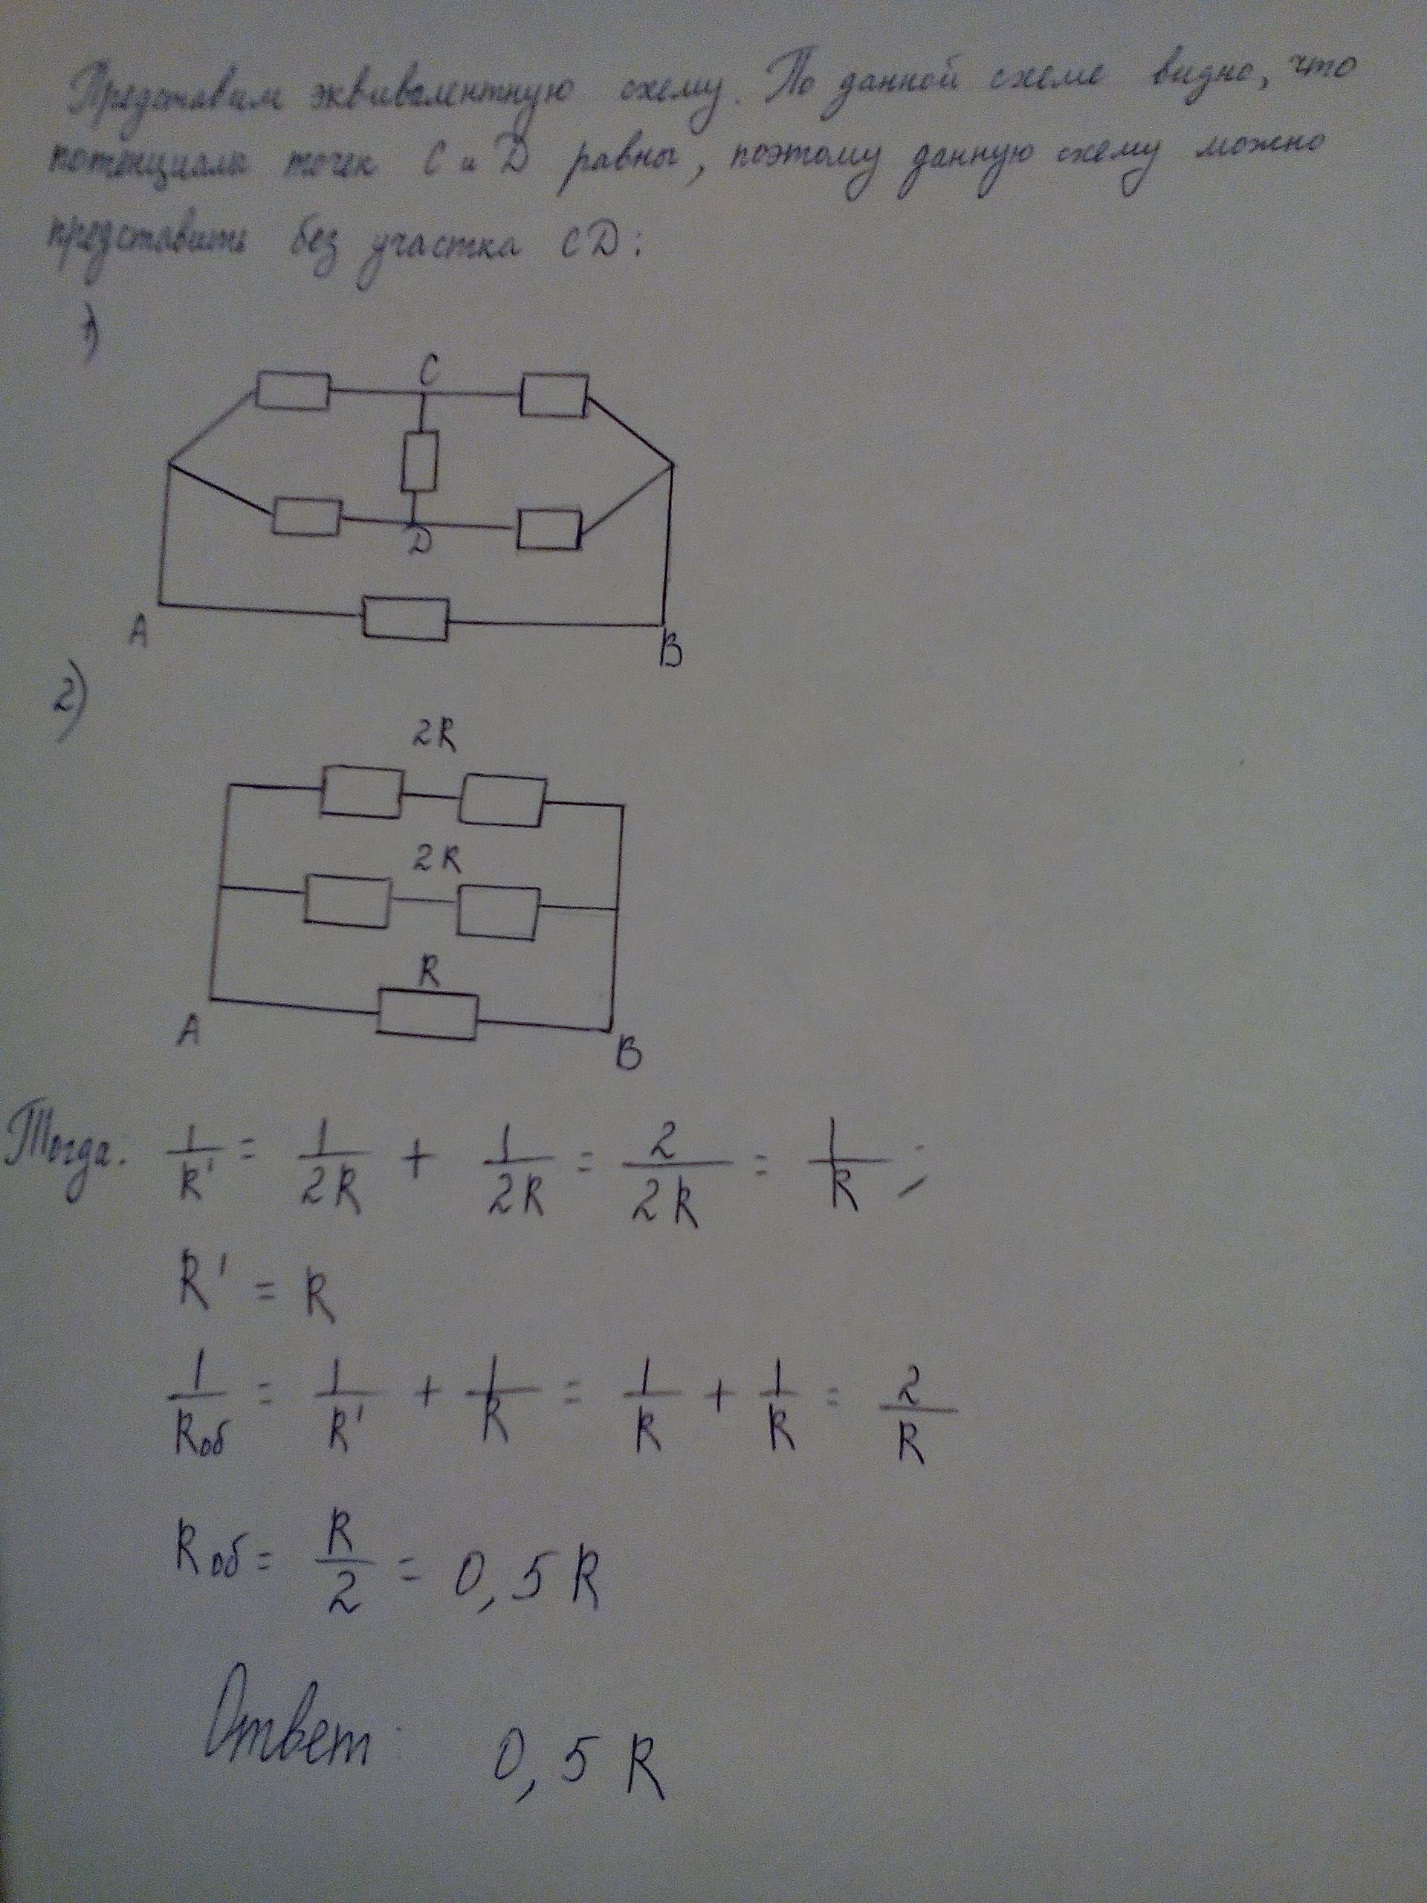 Представим эквивалентную схему. По данной схеме видно, что
потенциалы точек C и D равны, поэтому данную схему можно
представить без участка CD:
1)
C
D
A
B
2)
2R
2R
R
A
B
Тогда: 1/R' = 1/2R + 1/2R = 2/2R = 1/R ;
R' = R
1/Rоб = 1/R' + 1/R = 1/R + 1/R = 2/R
Rоб = R/2 = 0,5R
Ответ: 0,5 R